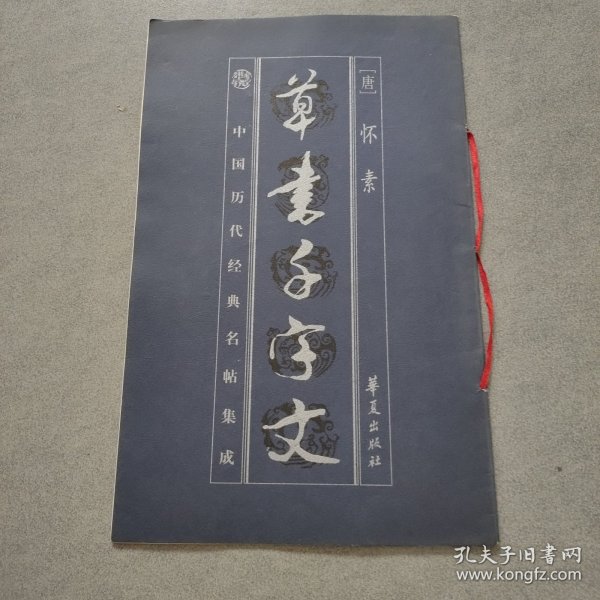 [唐]怀素
华夏出版社
草書千字文
中国历代经典名帖集成
孔夫子旧书网
www.kongfz.com